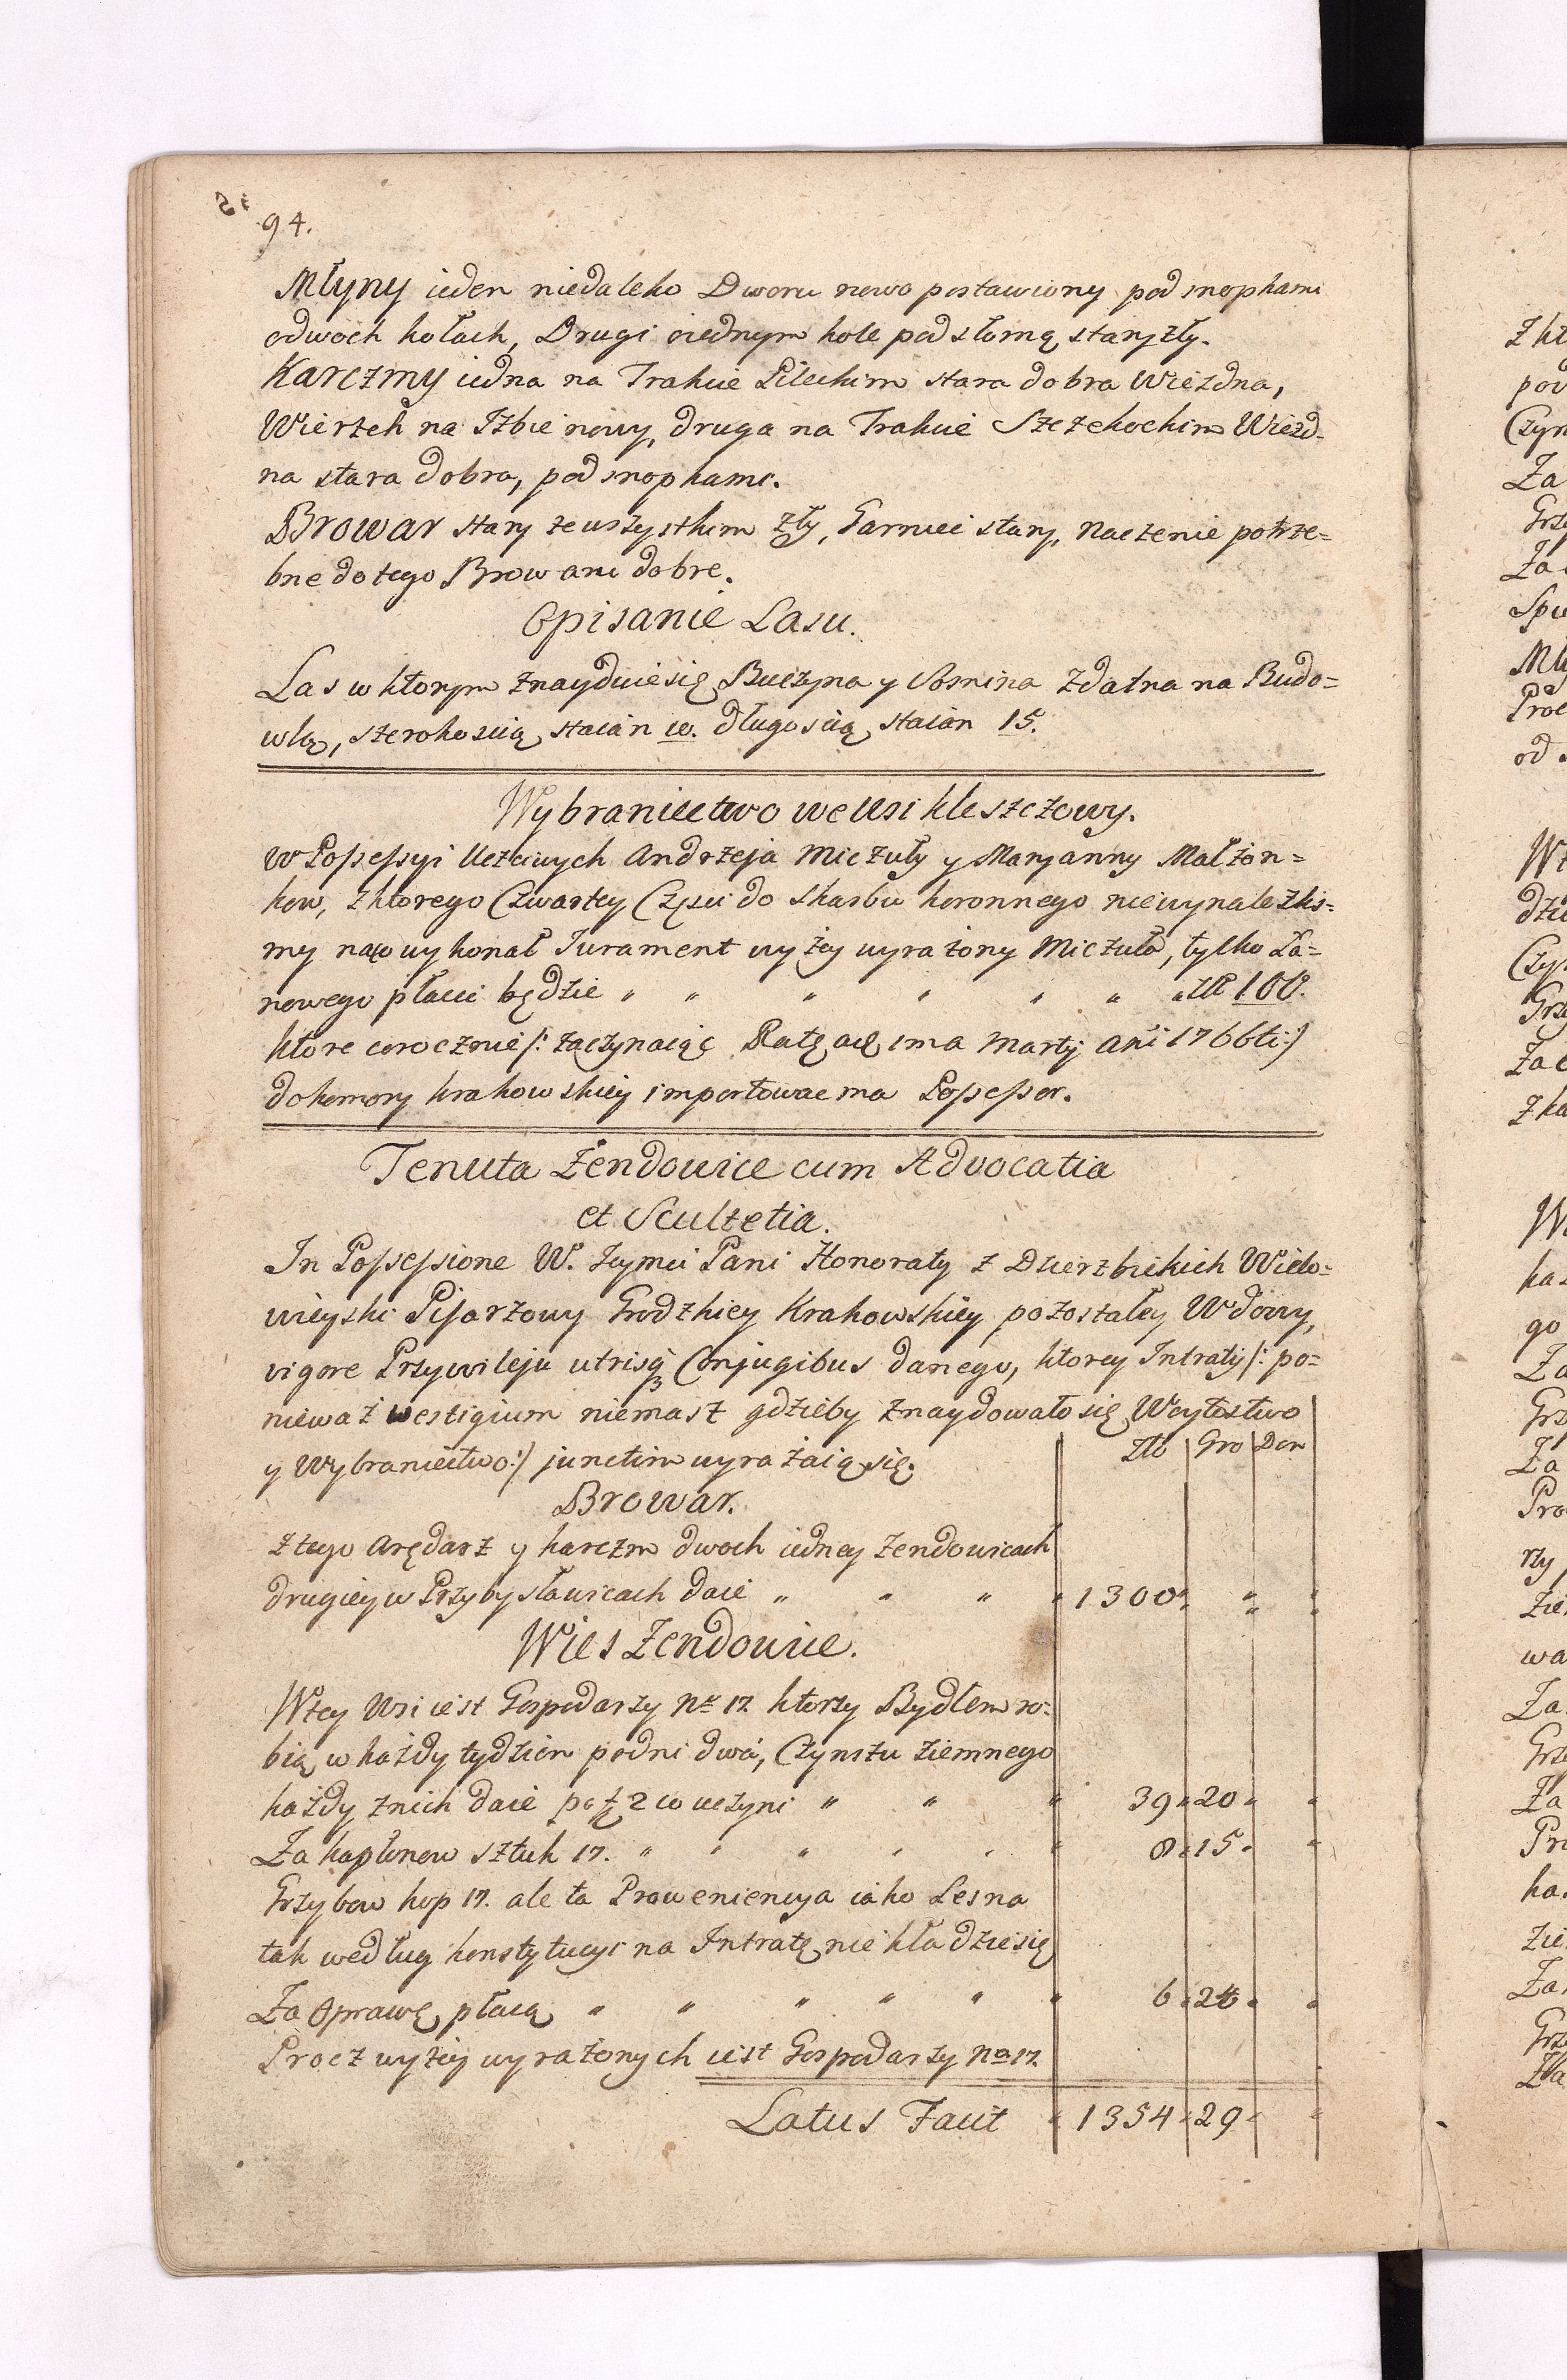 94.
Młyny ieden niedaleko Dworu nowo postawiony pod snopkami
odwoch kołach, Drugi oiednym kole pod słomą stary zły.
Karczmy iedna na Trakcie Pileckim stara dobra Wiezdna,
Wierzch na Izbie nowy, druga na Trakcie Szczekockim Wiezd-
na stara dobra, pod snopkami.
Browar stary zewszystkim zły, Garniec stary, Naczenie potrze=
bne do tego Browaru dobre.
Opisanie Lasu.
Las w ktorym znayduie się Buczyna y Sosnina zdatna na Budo=
wlą, szerokoscią staian 10. długoscią staian 15.
Wybraniectwo we Wsi Kleszczowy.
w Possessyi Uczciwych Andrzeja Miczuły y Maryanny Małżon=
kow, z ktorego Czwartey Częsci do Skarbu koronnego niewynalezlis=
my na co wykonał Jurament wyżey wyrażony Miczuła, tylko Ła=
nowego płacić będzie " " " " " " " zł 100.
ktore corocznie /: zaczynaiąc Ratę a 1ma Martij añi 1766ti :/
do komory krakowskiey importować ma Possessor.
Tenuta Żendowice cum Advocatia
et Scultetia.
In Possessione W. Jeymci Pani Honoraty z Dzierzbickich Wielo=
wieyski Pisarzowy Grodzkiey Krakowskiey pozostałey Wdowy,
vigore Przywileju utrisq3 Conjugibus danego, ktorey Intraty /: po=
nieważ westigium niemasz gdzieby znaydowało się Woytostwo
y Wybraniectwo :/ junctim wyrażaią się. Złto Gro Den
Browar.
z tego Arędarz y karczm dwoch iedney Zendowicach
drugiey w Przybysławicach daie " " " " 1300 " " "
Wies Zendowice.
W tey Wsi iest Gospodarzy Nr 17. ktorzy Bydłem ro=
bią w każdy tydzien po dni dwa, Czynszu ziemnego
każdy z nich daie po zł 2 10 uczyni " " " 39 " 20 " "
Za kapłonow sztuk 17. " " " " " " 8 " 15 " "
Grzybow kop 17. ale ta Proweniencya iako Lesna
tak według konstytucyi na Intratę nie kładzie się
Za Oprawę płacą " " " " " " 6 " 24 " "
Procz wyżey wyrażonych iest Gospodarzy No 17.
Latus Facit " 1354 " 29 " "